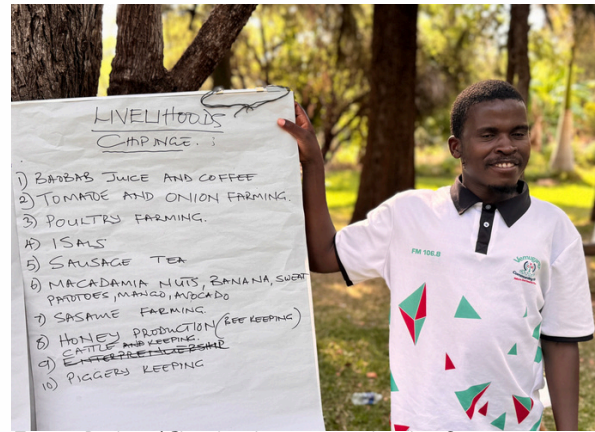 LIVELIHOODS
CHIPINGE.:
1) BAOBAB JUICE AND COFFEE
2) TOMATOE AND ONION FARMING.
3) POULTRY FARMING.
4) ISALS
5) SAUSAGE TEA
6) MACADAMIA NUTS, BANANA, SWEET
PATOTOES, MANGO, AVOCADO
7) SASAME FARMING.
8) HONEY PRODUCTION (BEE KEEPING)
9) CATTLE AND KEEPING.
ENTERPRENEURSHIP
10) PIGGERY KEEPING
FM 106.8